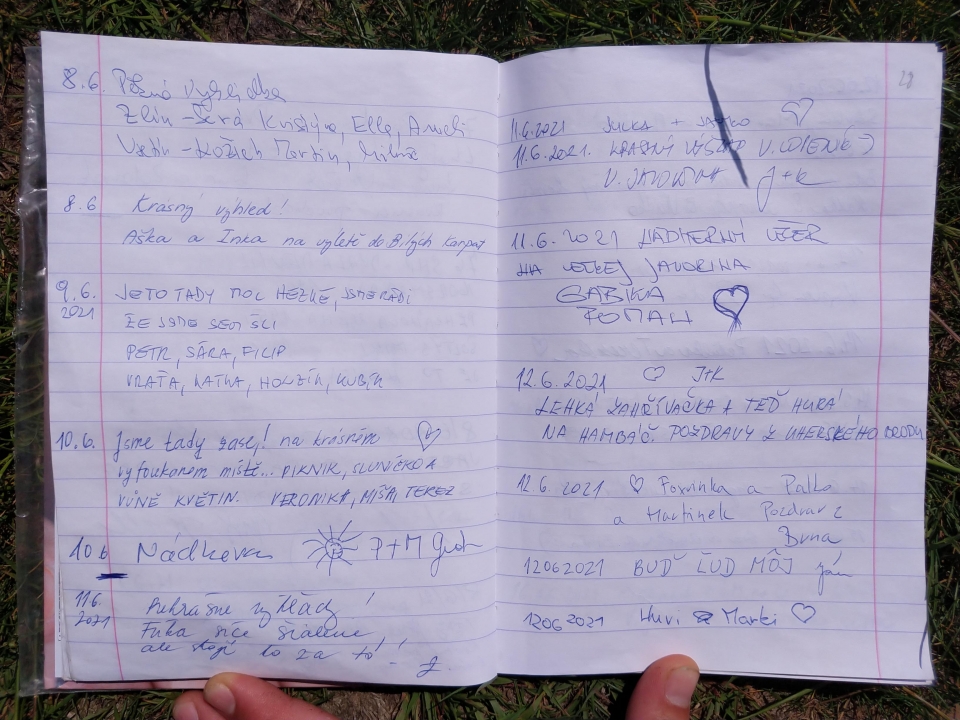 8.6. Pěkná vyhlídka
Zlín - Šerá Kristýna, Ella, Aneli
Vsetín - Kožich Martin,
8.6 Krásný výhled!
Aška a Inka na výletě do Bílých Karpat
9.6. JE TO TADY MOC HEZKÉ, JSME RÁDI
2021
ŽE JSME SEM ŠLI
PETR, SÁRA, FILIP
VRAŤA, KATKA, HONZÍK, KUBÍK
10.6. Jsme tady zase! na krásném
vyfoukaném místě... PIKNIK, SLUNÍČKO A
VŮNĚ KVĚTIN. VERONIKA, MÍŠA, TEREZ
10 6. Nádhera P+M
11.6. Prekrásne výhľady!
2021
Fúka síce šialene
ale stojí to za to!!
28
11.6.2021 JULKA + JANKO
11.6.2021. KRÁSNÝ VÝSTUP V. LOPENÍK →
V. JAVOŘINA J+K
11.6.2021 NÁDHERNÝ VEČER
NA VEĽKEJ JAVORINA
GABIKA
ROMAN
12.6.2021 J+K
LEHKÁ ZAHŘÍVAČKA A TEĎ HURÁ
NA HAMBÁČ. POZDRAVY Z UHERSKÉHO BRODU
12.6.2021 a Paťko
a Martinek Pozdrav z
Brna
12062021 BUĎ ĽUD MÔJ Ján
12062021 Huri & Marki